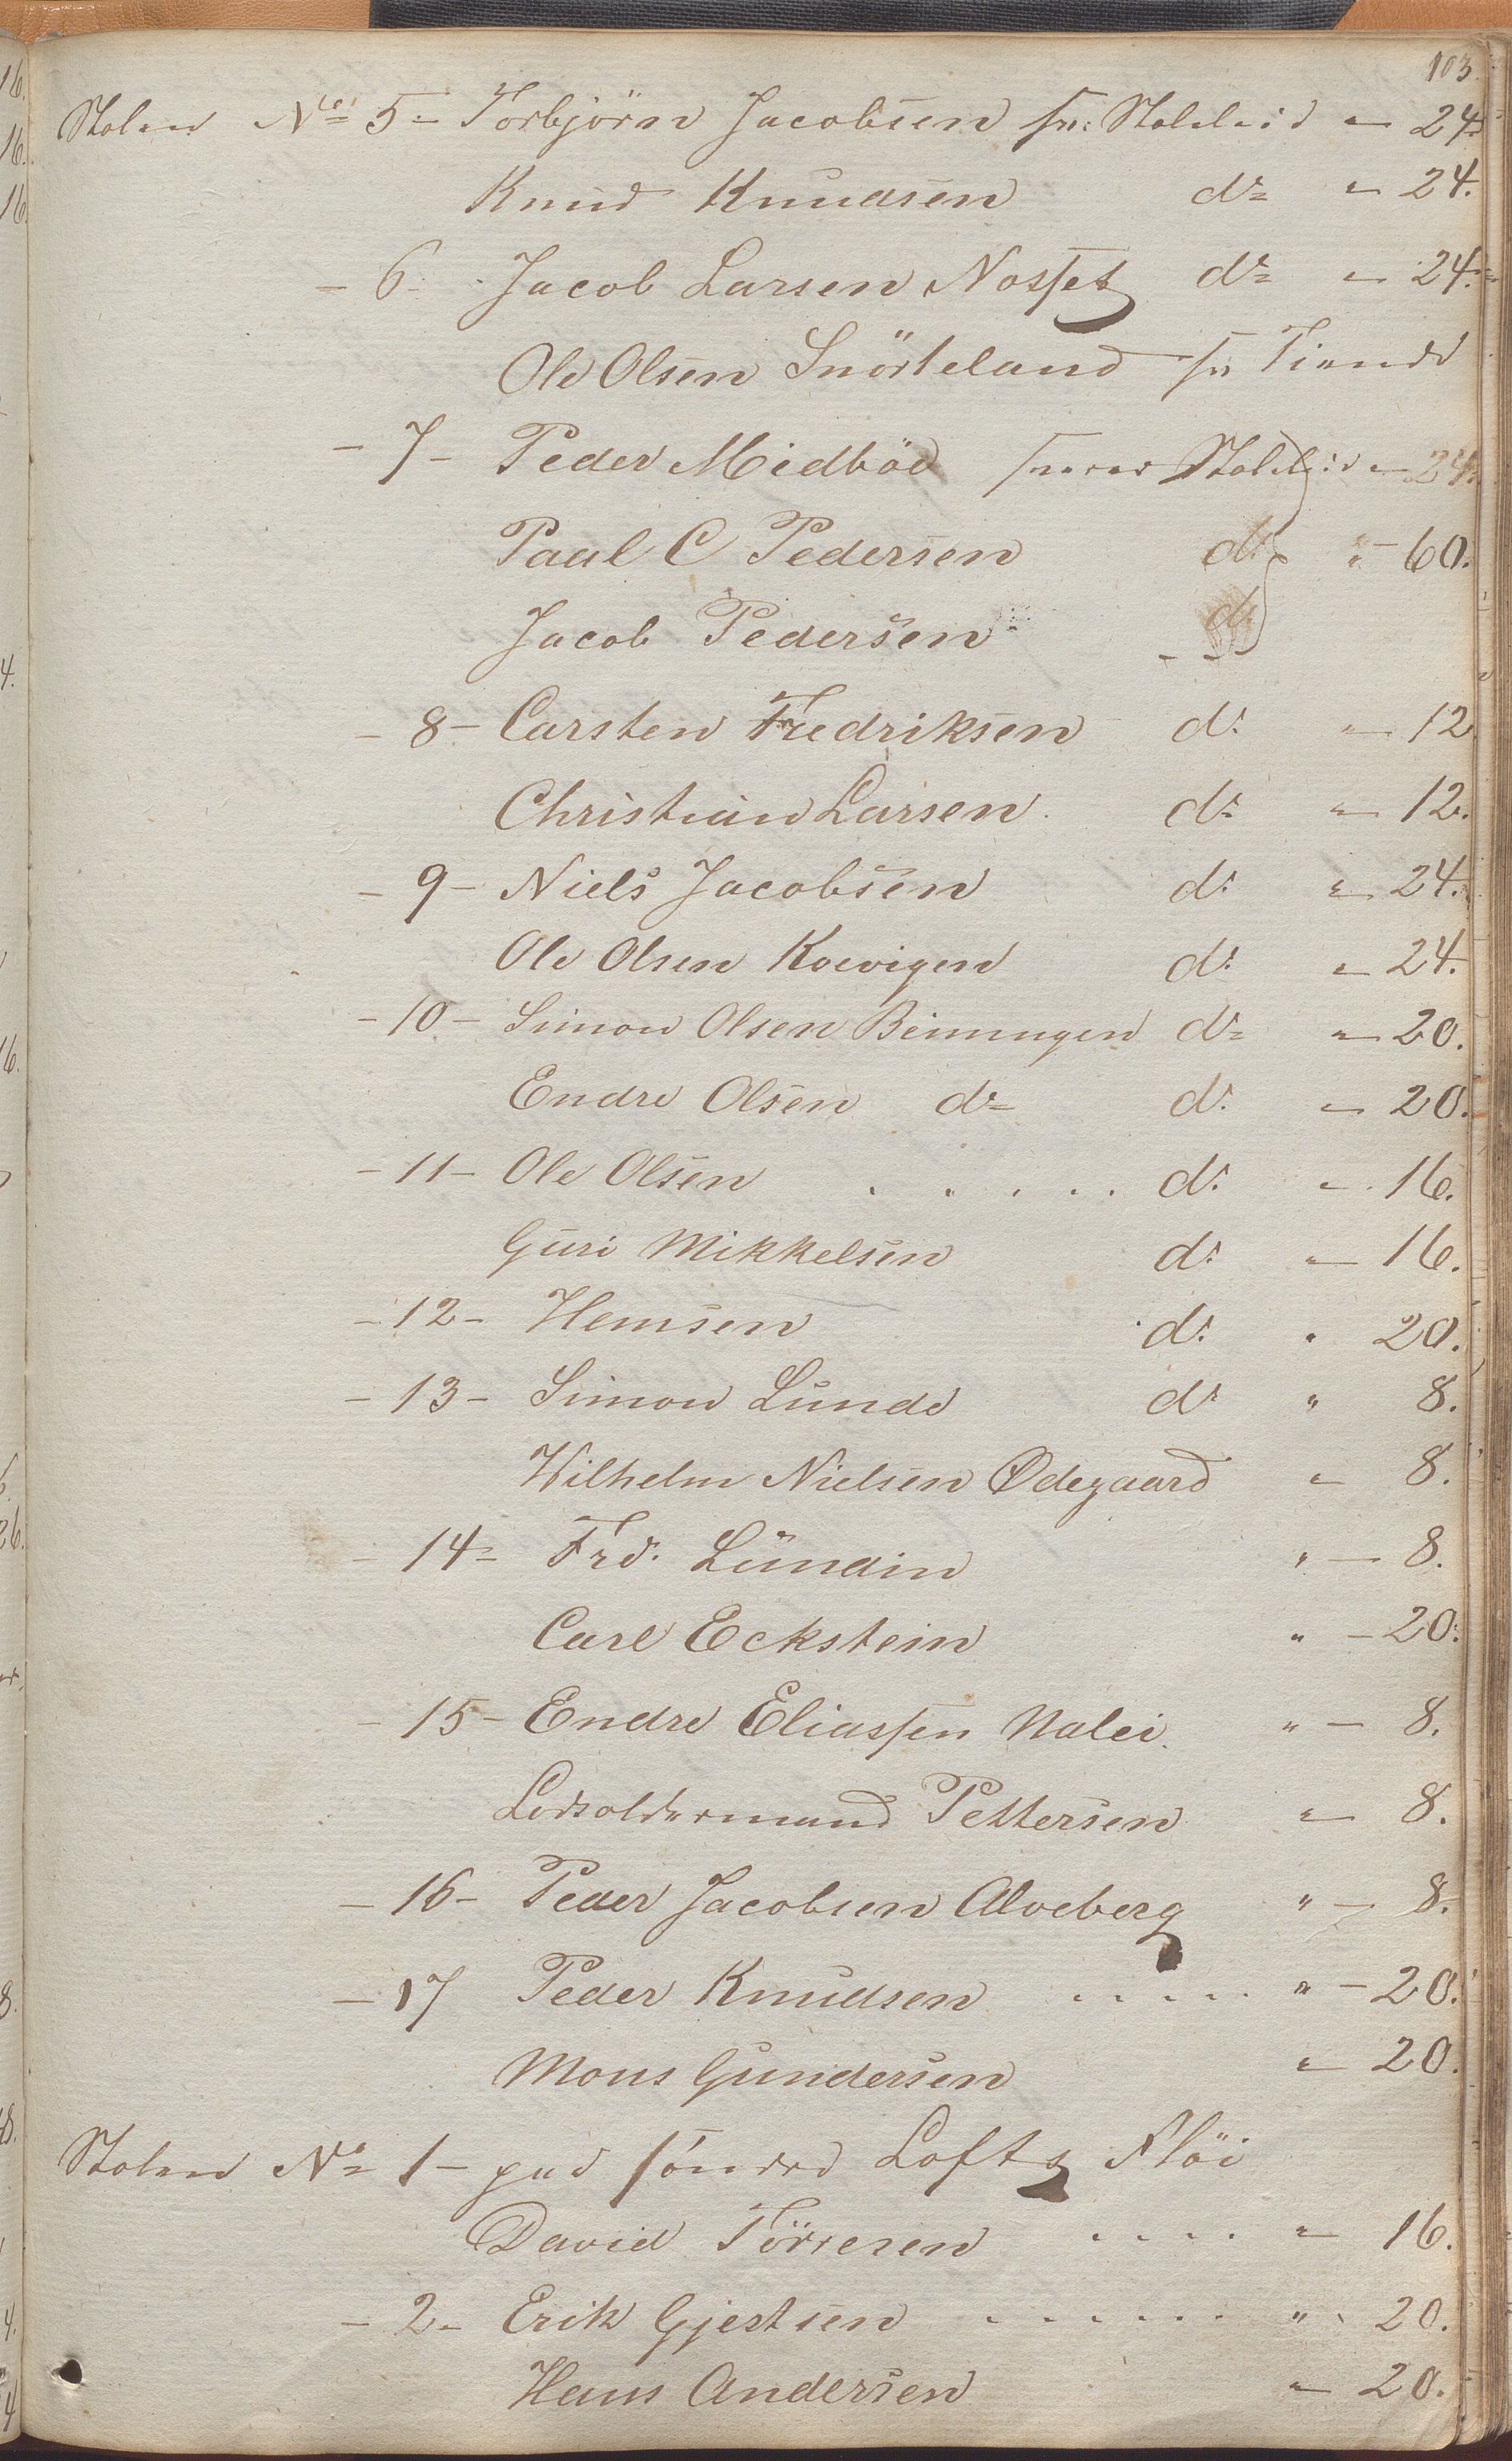 103.
Stolen No 5 - Torbjörn Jacobsen sv: Stoleleie " 24.
Knud Knudsen do " 24.
- 6 - Jacob Larsen Nosset do " 24.
Ole Olsen Snörteland sv Tiende
- 7 - Peder Midböe svarer Stoleleie " 24.
Paul C Pedersen do " - 60.
Jacob Pedersen do
- 8 - Carsten Fredriksen do " 12
Christian Larsen do " 12.
- 9 - Niels Jacobsen do " 24.
Ole Olsen Koevigen do " 24.
- 10 - Simon Olsen Binningen do " 20.
Endre Olsen do do " 20.
- 11 - Ole Olsen . . . . . do " 16.
Guri Mikkelsen do " 16.
- 12 - Hemsen do " 20.
- 13 - Simon Lunde do " 8.
Wilhelm Nielsen Ødegaard " 8.
- 14 - Frd. Lundin " - 8.
Carl Eckstein " - 20.
- 15 - Endre Eliassen Nalei " - 8.
Lodsoldermand Pettersen " 8.
- 16 - Peder Jacobsen Alveberg " - 8.
- 17 Peder Knudsen . . . . . " - 20.
Mons Gundersen " 20.
Stolen No 1 - paa söndre Lofts Flöi
David Törresen . . . . " 16.
- 2 - Erik Gjertsen . . . . . . . " 20.
Hans Andersen " 20.